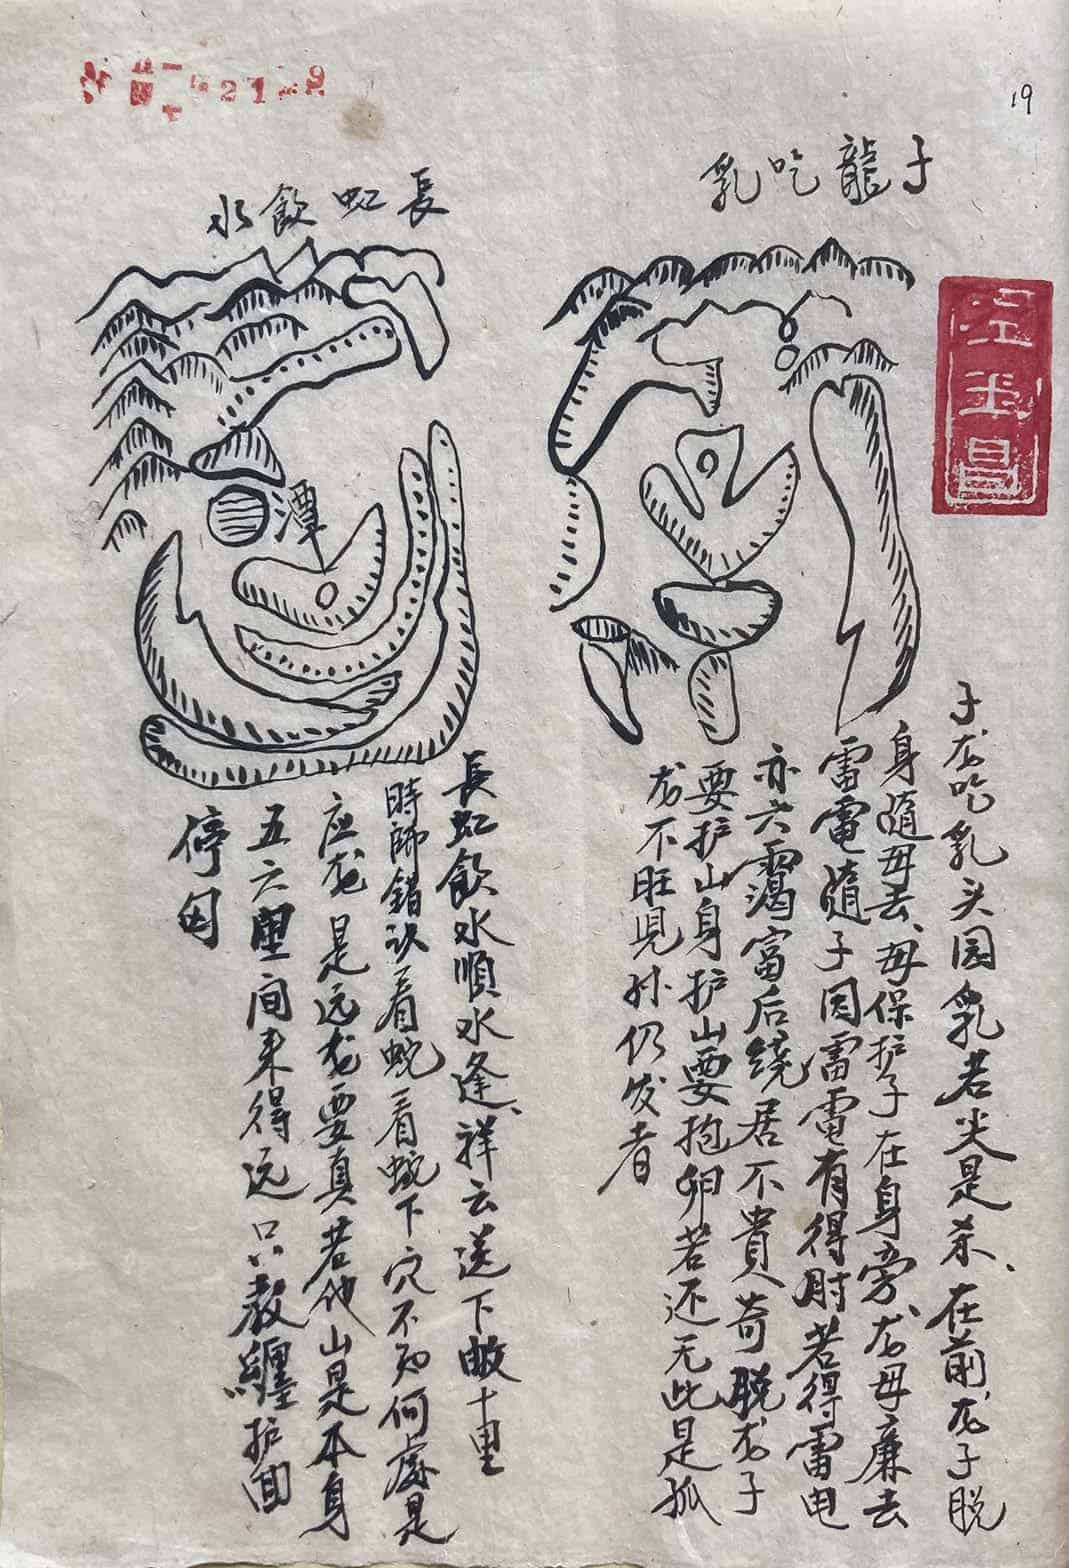 19
子龍吃乳
子龙吃乳头园乳若尖是杀、在前龙子脱
身随母去、母保护子在身旁、龙母廉去
雷電随子因雷電有得肘若得雷电
亦六霭富后绕居不貴奇脱龙子
要护山身护山要抱卵若还无此是孤
龙不旺児孙仍发者
長虹飲水
潭
長虹飲水順水逢、祥云送下数十里
時師錯认看蛇二看蛇下穴不知何處是
应龙是远龙要真若他山是本身
五六里间来得远只教纏护回
停囱